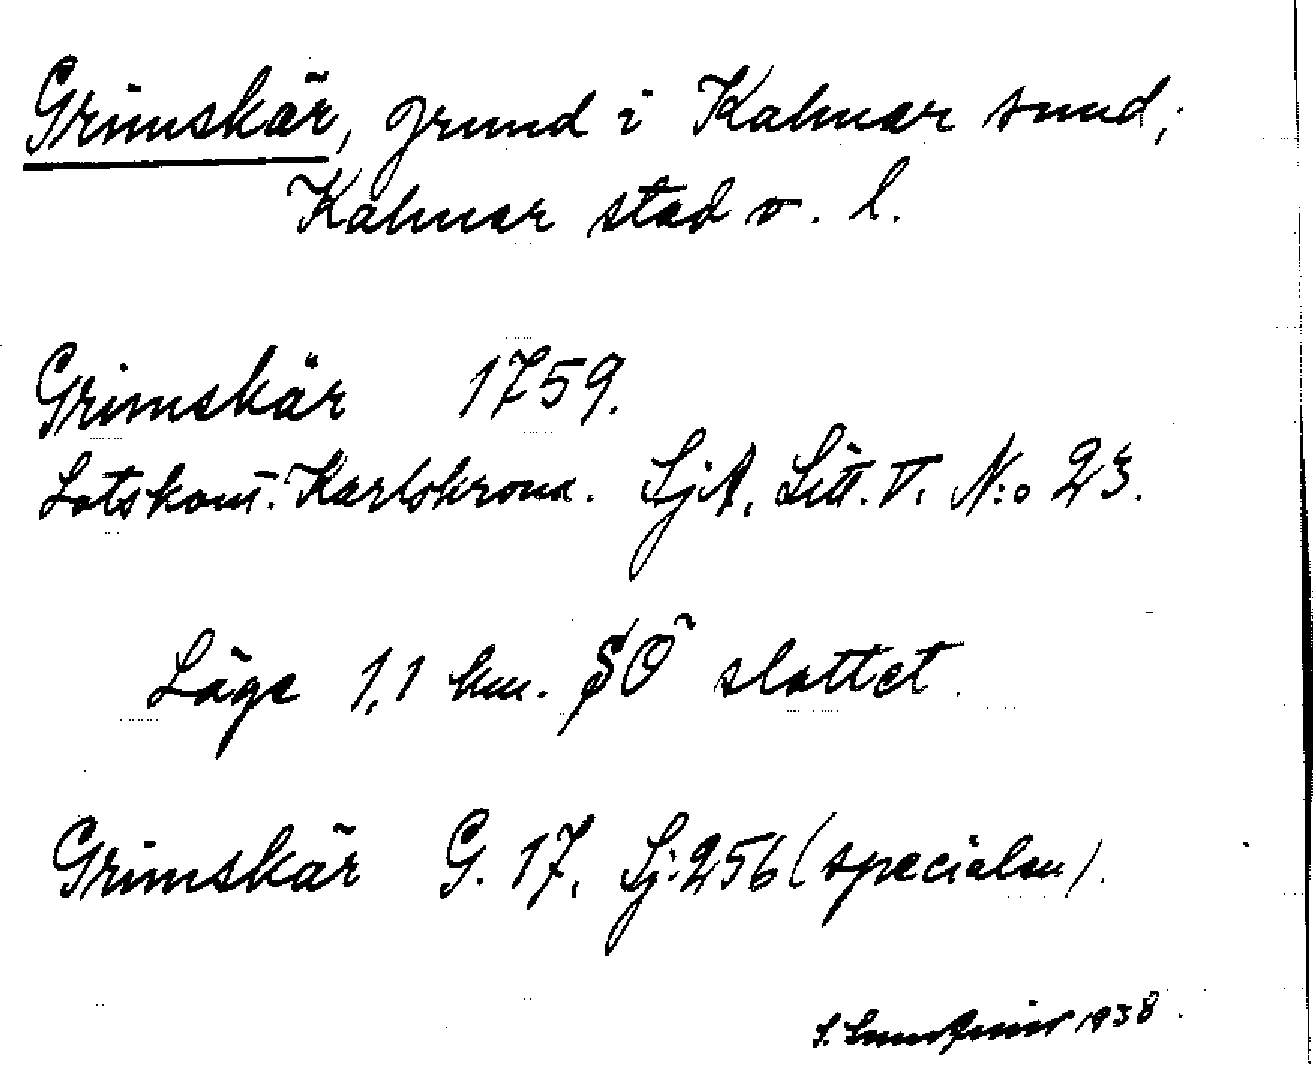 Grimskär, grund i Kalmar sund;
Kalmar stad o. l.
Grimskär 1759.
Lotskont. Karlskrona. SjA. Litt. V. N:o 23.
Läge 1,1 km. SÖ slottet.
Grimskär G. 17. Sj. 256 (specialen).
1938.